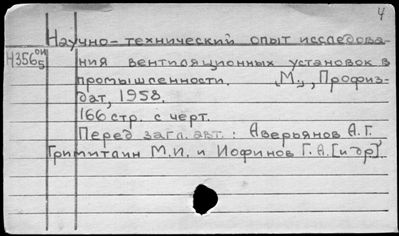 4
Научно-технический опыт исследова-
ОИ
43565
ния вентиляционных установок в
промышленности. „М.", Профиз-
дат, 1958.
166 стр. с черт.
Перед загл. авт.: Аверьянов А.Г.
Гримитлин М.И. и Иофинов Г.А. [и др]